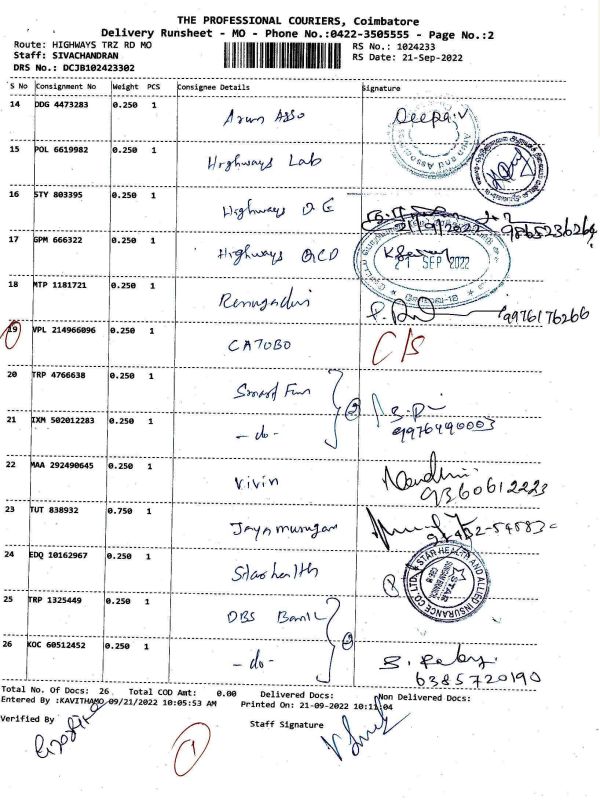 THE PROFESSIONAL COURIERS, Coimbatore
Delivery Runsheet - MO - Phone No.:0422-3505555 - Page No.:2
Route: HIGHWAYS TRZ RD MO
RS No.: 1024233
Staff: SIVACHANDRAN
RS Date: 21-Sep-2022
DRS No.: DCJB102423302
S No Consignment No Weight PCS Consignee Details Signature
14 DDG 4473283 0.250 1 Arun Asso Deepa.V
15 POL 6619982 0.250 1 Highways Lab
16 STY 803395 0.250 1 Highways DE
21/9/2022
17 GPM 666322 0.250 1 Highways QCD
21 SEP 2022
18 MTP 1181721 0.250 1
9976176266
19 VPL 214966096 0.250 1 CA70BO C/S
20 TRP 4766638 0.250 1
21 IXM 502012283 0.250 1 - do - 2
9976490003
22 MAA 292490645 0.250 1 Vivin
9360612223
23 TUT 838932 0.750 1 Jayamurugan
24 EDQ 10162967 0.250 1 Star health
STAR HEALTH AND ALLIED INSURANCE CO. LTD.
STAR
25 TRP 1325449 0.250 1 DBS Bank
26 KOC 60512452 0.250 1 - do - 2
6385720190
Total No. Of Docs: 26 Total COD Amt: 0.00 Delivered Docs: Non Delivered Docs:
Entered By :KAVITHAMO 09/21/2022 10:05:53 AM Printed On: 21-09-2022 10:11:04
Verified By
Staff Signature
1